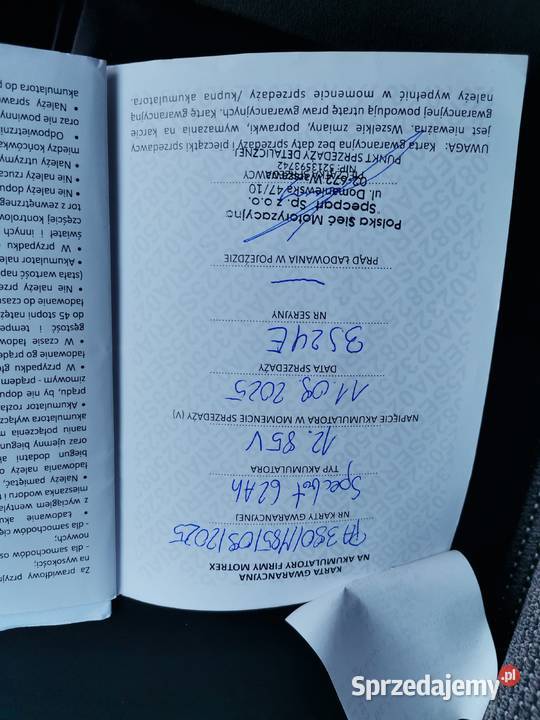 KARTA GWARANCYJNA
NA AKUMULATORY FIRMY MOTREX
PA380/M85/09/2025
NR KARTY GWARANCYJNEJ
62Ah
TYP AKUMULATORA
12.85V
NAPIĘCIE AKUMULATORA W MOMENCIE SPRZEDAŻY (V)
11.09.2025
DATA SPRZEDAŻY
3S24E
NR SERYJNY
PRĄD ŁADOWANIA W POJEŹDZIE
Polska Sieć Motoryzacyjna
"Specpart" Sp. z o.o.
ul. Domaniewska 47/10
02-672 Warszawa
NIP: 5213593742
PUNKT SPRZEDAŻY DETALICZNEJ
UWAGA: Karta gwarancyjna bez daty sprzedaży i pieczątki sprzedawcy
jest nieważna. Wszelkie zmiany, poprawki, wymazania na karcie
gwarancyjnej powodują utratę praw gwarancyjnych. Kartę gwarancyjną
należy wypełnić w momencie sprzedaży /kupna akumulatora.
Za prawidłowy
na wysokości;
- dla samochodów
nowych;
- dla samochodów
• Ładowanie
z wyciągiem
mieszanka
• Należy pamiętać,
ładowania należy
biegun dodatni
oraz ujemny biegun
akumulatora
• Akumulator
prądu, by nie
zimowym - prądem
• W przypadku
ładowania go
• W czasie
gęstość i
do 45 stopni
ładowanie do czasu
• Nie należy
(stała wartość
Akumulator
• W przypadku
świateł i innych
częściej
tor z zewnętrznego
• Nie należy
• Nie należy
• Należy
między
• Odpowietrzni
oraz nie powinny
• Należy
akumulatora do
Sprzedajemy.pl